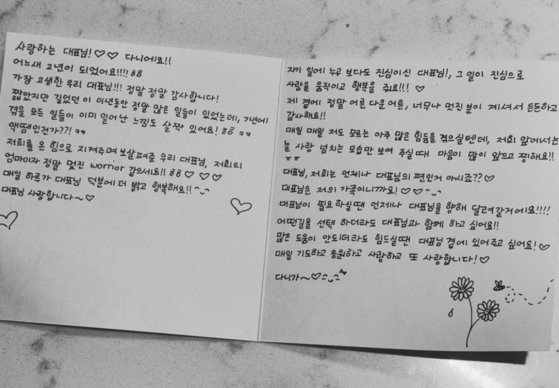 사랑하는 대표님! ♡♡ 다니에요!!
어느새 2년이 되었어요!!!! 88
가장 고생한 우리 대표님!!! 정말 정말 감사합니다!
짧았지만 길었던 이 이년동안 정말 많은 일들이 있었는데, 7년에
겪을 모든 일들이 이미 일어난 느낌도 살짝 있어요! 88
액땜인건가??!
저희를 온 힘으로 지켜주며 보살펴준 우리 대표님, 저희의
엄마이자 정말 멋진 worrior 같으세요!! 88 ♡ ♡♡
매일 하루가 대표님 덕분에 더 밝고 행복해요!! ^_^
대표님 사랑합니다~ ♡
지금 일에 누구 보다도 진심이신 대표님!, 그 일이 진심으로
사람을 움직이고 행복을 줘요!!! ♡
제 곁에 정말 어른 다운 어른, 너무나 멋진 분이 계셔서 든든하고
감사해요!!
매일 매일 저도 모르는 아주 많은 힘듦을 겪으실텐데, 저희 앞에서는
늘 사랑 넘치는 모습만 보여 주실 때 마음이 많이 아프고 찡해요!!
대표님, 저희는 언제나 대표님의 편인거 아시죠?? ♡
대표님은 저의 가족이니까요! ♡♡ ^_^
대표님이 필요하실땐 언제나 대표님을 향해 달려갈거에요!!!!
어떤길을 선택 하더라도 대표님과 함께 하고 싶어요!!
많은 도움이 안되더라도 힘드실땐 대표님 곁에 있어주고 싶어요! ♡
매일 기도하고 응원하고 사랑하고 또 사랑합니다! ♡
다니가~ ♡ ^_^